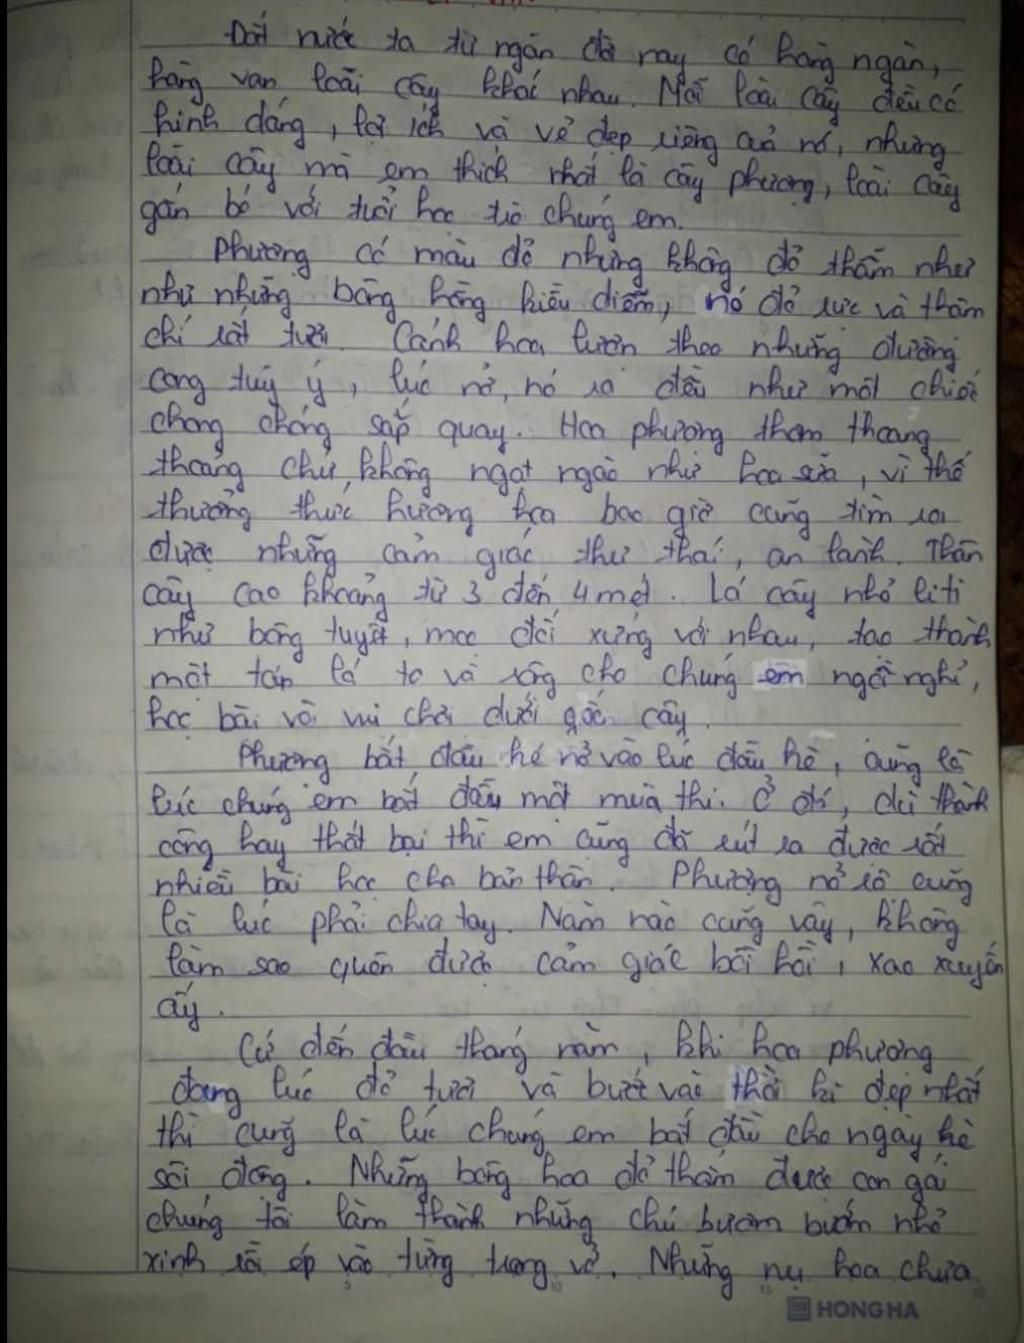 Đất nước ta từ ngàn đời nay có hàng ngàn,
hàng vạn loài cây khác nhau. Mỗi loài cây đều có
hình dáng, lợi ích và vẻ đẹp riêng của nó, nhưng
loài cây mà em thích nhất là cây phượng, loài cây
gắn bó với tuổi học trò chúng em.
Phượng có màu đỏ nhưng không đỏ thắm như
như những bông hồng kiều diễm, nó đỏ rực và thậm
chí rất tươi. Cánh hoa lượn theo những đường
cong tuỳ ý, lúc nở, nó xoè đều như một chiếc
chong chóng sắp quay. Hoa phượng thơm thoang
thoảng chứ không ngọt ngào như hoa sữa, vì thế
thưởng thức hương hoa bao giờ cũng tìm ra
được những cảm giác thư thái, an lành. Thân
cây cao khoảng từ 3 đến 4 mét. Lá cây nhỏ li ti
như bông tuyết, mọc đối xứng với nhau, tạo thành
một tán lá to và rộng cho chúng em ngồi nghỉ,
học bài và vui chơi dưới gốc cây.
Phượng bắt đầu hé nở vào lúc đầu hè, cũng là
lúc chúng em bắt đầu một mùa thi. Ở đó, dù thành
công hay thất bại thì em cũng đã rút ra được rất
nhiều bài học cho bản thân. Phượng nở rộ cũng
là lúc phải chia tay. Năm nào cũng vậy, không
làm sao quên được cảm giác bồi hồi, xao xuyến
ấy.
Cứ đến đầu tháng năm, khi hoa phượng
đang lúc đỏ tươi và bước vào thời kì đẹp nhất
thì cũng là lúc chúng em bắt đầu cho ngày hè
sôi động. Những bông hoa đỏ thắm được con gái
chúng tôi làm thành những chú bươm bướm nhỏ
xinh rồi ép vào từng trang vở. Những nụ hoa chưa
HONG HA